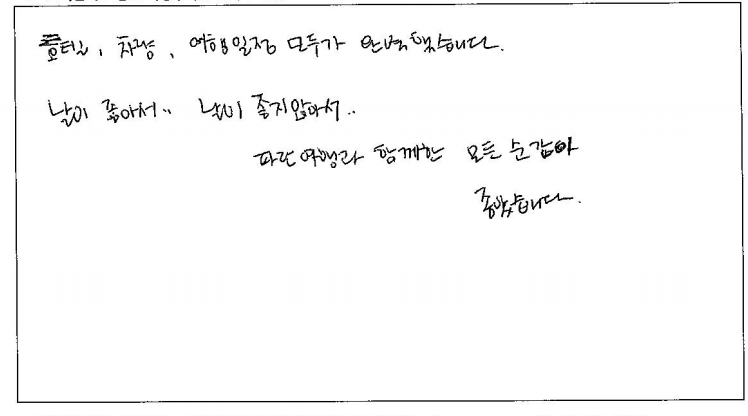 호텔, 차량, 여행일정 모두가 완벽했습니다.
날이 좋아서.. 날이 좋지않아서..
파란여행과 함께한 모든 순간이
좋았습니다.